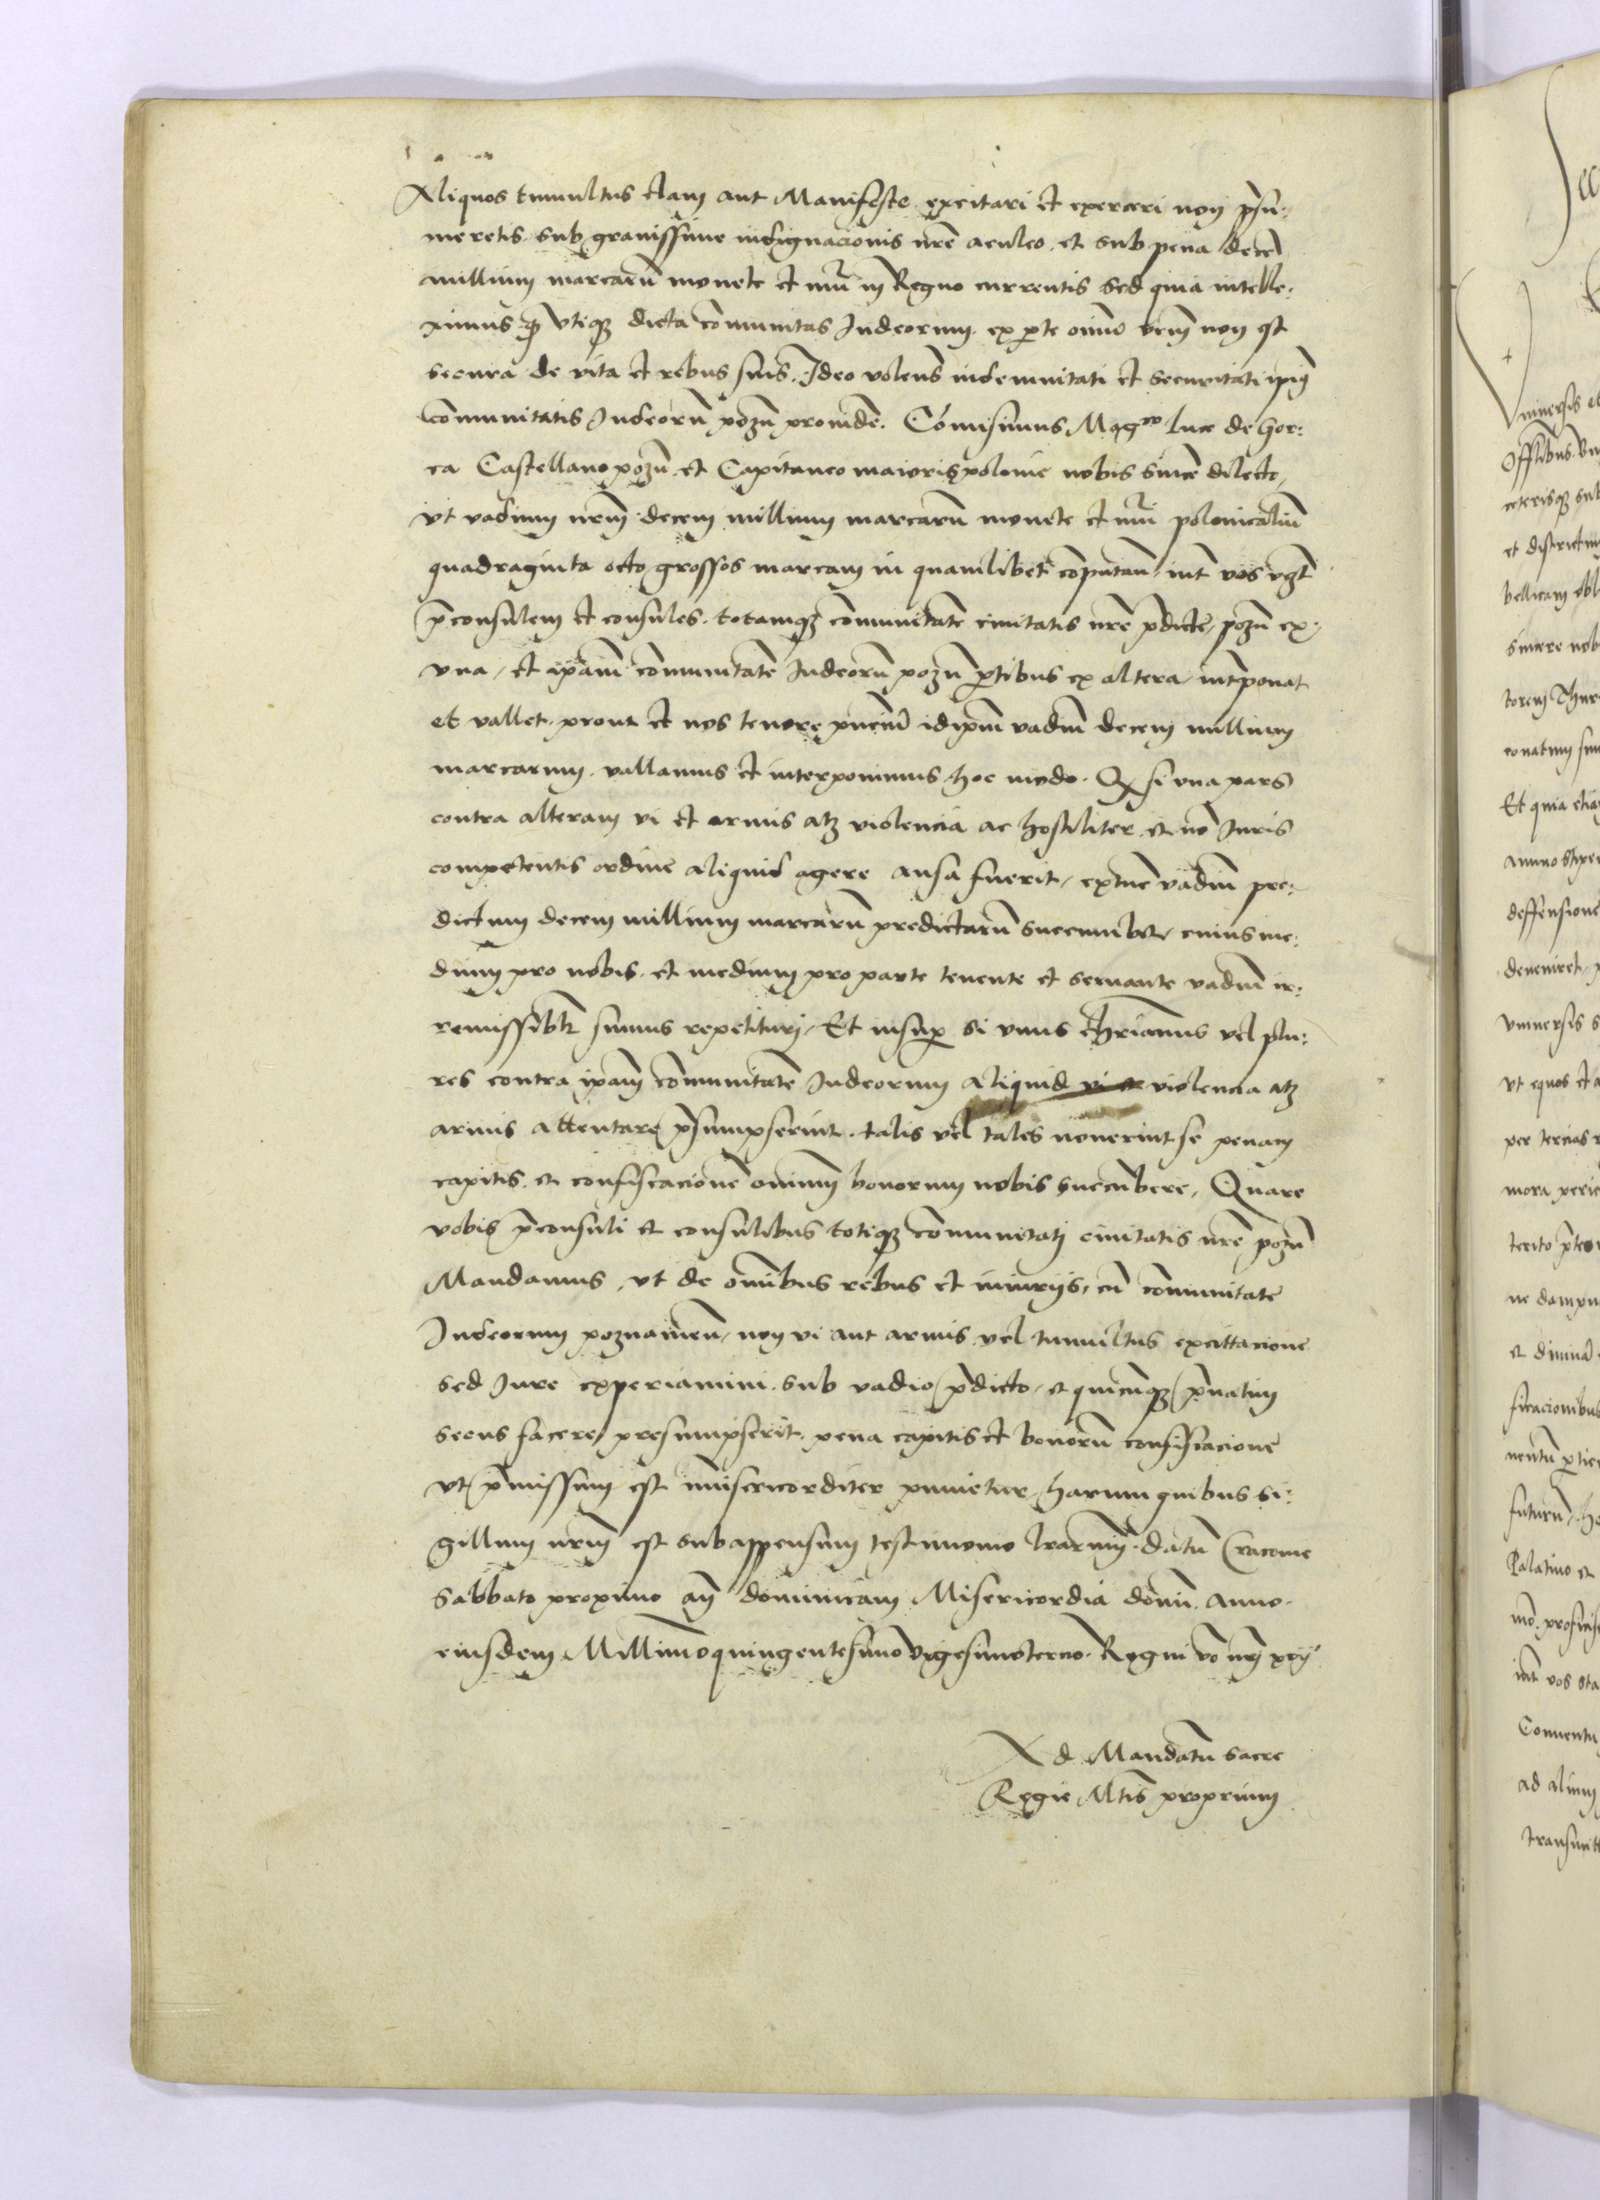 Aliquos tumultus clam aut Manifeste excitari et exerceri non p̄su:
meretis. sub grauissime indignacionis nr̄e aculeo. et sub pena decē
millium marcarū monete et nūi in Regno currentis sed quia intelle:
ximus q̄ vtiqʒ dicta com̄unitas Iudeorum. ex p̄te om̄io vr̄m non est
secura de vita et rebus suis. Ideo volens indemnitati et securitati ip̄ius
Com̄unitatis Iudeorū pozn̄ prouidē. Cōmisimus Mag͞co Luce de Gor:
ca Castellano pozn̄ et Capitaneo maioris polonie nobis sincē dilecto,
vt vadium nr̄m decem millium marcarū monete et nūi polonicaliū
quadraginta octo grossos marcam in quamlibet cōputan̄. int̄ vos vz̄t
p̄consulem et consules. totamqʒ com̄unitatē ciuitatis nr̄e p̄dicte, pozn̄ ex.
vna, et ip̄am com̄unitatē Iudeorū pozn̄ p̄tibus ex altera, int̄ponat
et vallet. prout et nos tenore pn̄cium idip̄m vadiū decem millium
marcarum. vallamus et interponimus hoc modo. Q̄ si vna pars
contra alteram vi et armis atʒ violencia ac hostiliter. et nō Iuris
competentis ordine aliquid agere ausa fuerit, extunc vadiū pre:
dictum decem millium marcarū predictarū succumbet, cuius me:
dium pro nobis. et medium pro parte tenente et seruante vadiū ir:
remissibl̄r sumus repetituri, Et insup̄ si vnus chr̄ianus vel plu:
res contra ip̄am com̄unitatē Iudeorum aliquid vi et violencia atʒ
armis attentare p̄sumpserint. talis vel tales nouerint se penam
capitis. et confiscacionē om̄ium bonorum nobis succūbere, Quare
vobis p̄consuli et consulibus totiqʒ com̄unitati ciuitatis nr̄e pozn̄
Mandamus, vt de om̄ibus rebus et iniurijs, cū com̄unitate
Iudeorum poznanien̄, non vi aut armis vel tumultus excittacione
sed Iure experiamini. sub vadio p̄dicto, et quicūqʒ p̄uatim
secus facere presumpserit. pena capitis et bonorū confiscacione
vt p̄missum est im̄isericorditer punietur, harum quibus si:
gillum nr̄m est subappensum testimonio lr̄arum. datū Cracouie
Sabbato proximo an̄ dominicam Misericordiā domī. Anno.
eiusdem Millimoquingentesimovigesimotercio. Regni vō nr̄i xvij
Ad Mandatū sacre
Regie Mtis proprium